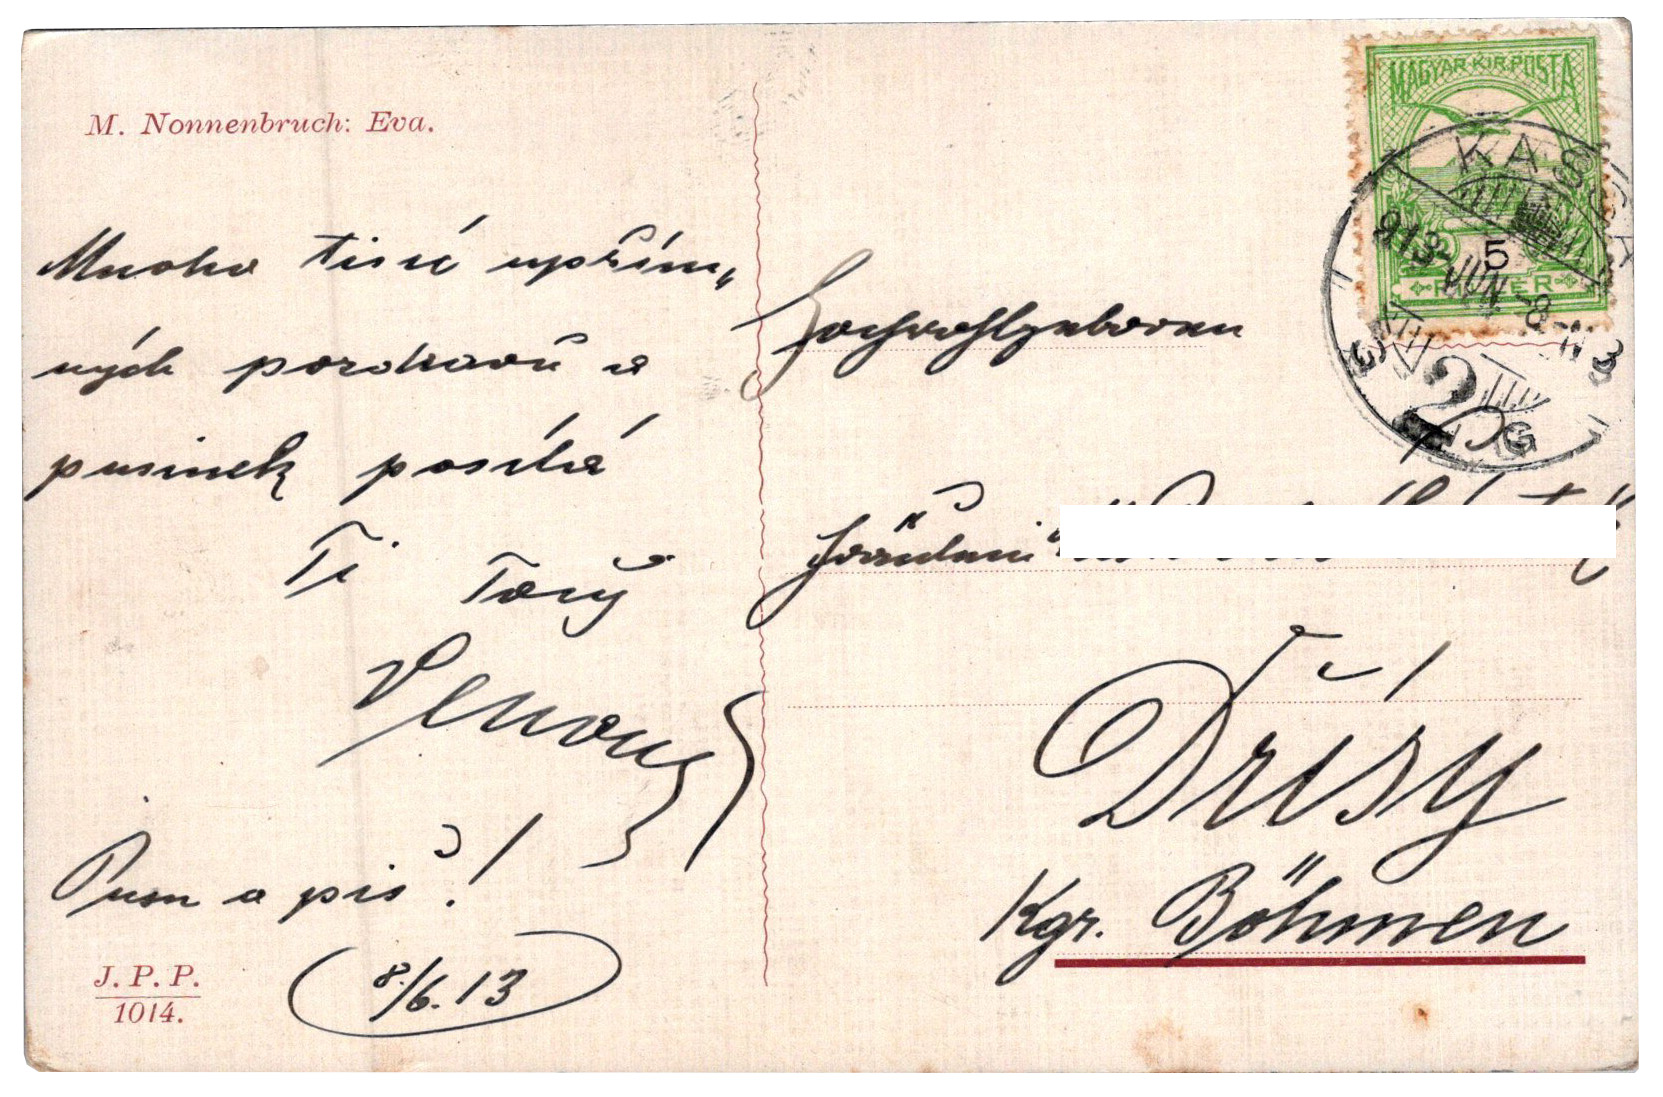 M. Nonnenbruch: Eva.
Mnoho tisíc upřím„
ných pozdravů a
pusinek posílá
Ti Tvůj
Pusu a piš!
8./6. 13
J. P. P.
1014.
MAGYAR KIR. POSTA
5
FILLÉR
KASSA
913 JUN -8 N 3
2 G
Hochwohlgeboren
Fräulein
Dřísy
Kgr. Böhmen